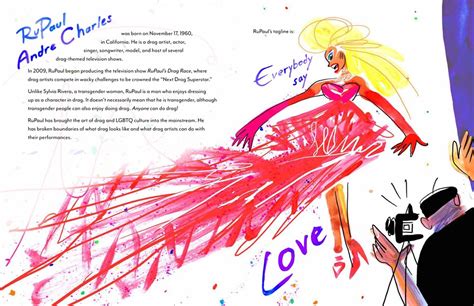 RuPaul
Andre Charles
was born on November 17, 1960,
in California. He is a drag artist, actor,
singer, songwriter, model, and host of several
drag-themed television shows.
In 2009, RuPaul began producing the television show RuPaul's Drag Race, where
drag artists compete in wacky challenges to be crowned the "Next Drag Superstar."
Unlike Sylvia Rivera, a transgender woman, RuPaul is a man who enjoys dressing
up as a character in drag. It doesn't necessarily mean that he is transgender, although
transgender people can also enjoy doing drag. Anyone can do drag!
RuPaul has brought the art of drag and LGBTQ culture into the mainstream. He
has broken boundaries of what drag looks like and what drag artists can do with
their performances.
RuPaul's tagline is:
Everybody
say
Love